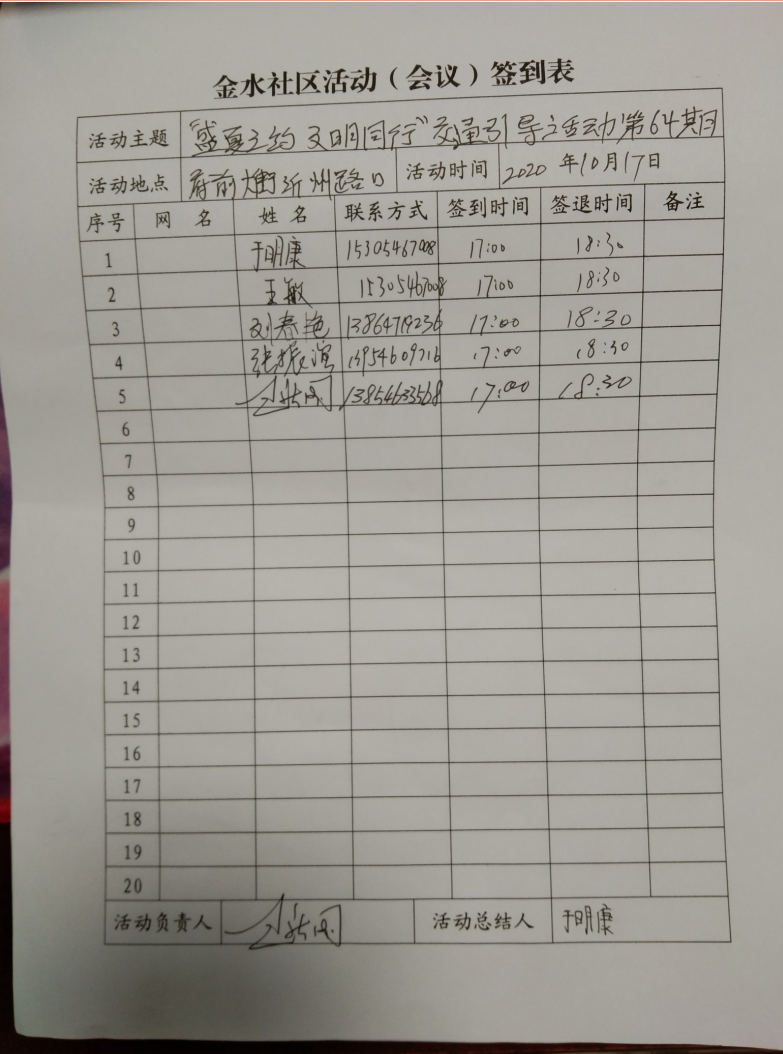 金水社区活动（会议）签到表
活动主题 "盛夏之约 文明同行"交通引导之活动第64期
活动地点 府前大街沂州路口 活动时间 2020年10月17日
序号 网 名 姓 名 联系方式 签到时间 签退时间 备注
1 于明康 15305467008 17:00 18:30
2 王敏 15305467008 17:00 18:30
3 刘春艳 17:00 18:30
4 张振滨 17:00 18:30
5 13854633568 17:00 18:30
6
7
8
9
10
11
12
13
14
15
16
17
18
19
20
活动负责人 活动总结人 于明康